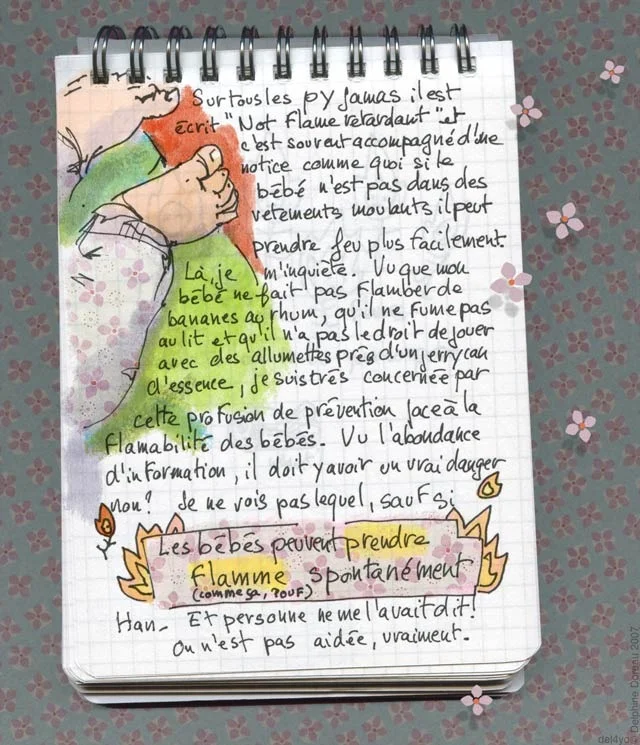 Sur tous les pyjamas il est
écrit "Not Flame retardant" et
c'est souvent accompagné d'une
notice comme quoi si le
bébé n'est pas dans des
vêtements moulants il peut
prendre feu plus facilement.
Là, je m'inquiète. Vu que mon
bébé ne fait pas flamber de
bananes au rhum, qu'il ne fume pas
au lit et qu'il n'a pas le droit de jouer
avec des allumettes près d'un jerrycan
d'essence, je suis très concernée par
cette profusion de prévention face à la
flamabilité des bébés. Vu l'abondance
d'information, il doit y avoir un vrai danger
non? Je ne vois pas lequel, sauf si
Les bébés peuvent prendre
flamme spontanément
(comme ça, POUF)
Han_ Et personne ne me l'avait dit!
On n'est pas aidée, vraiment.
2007